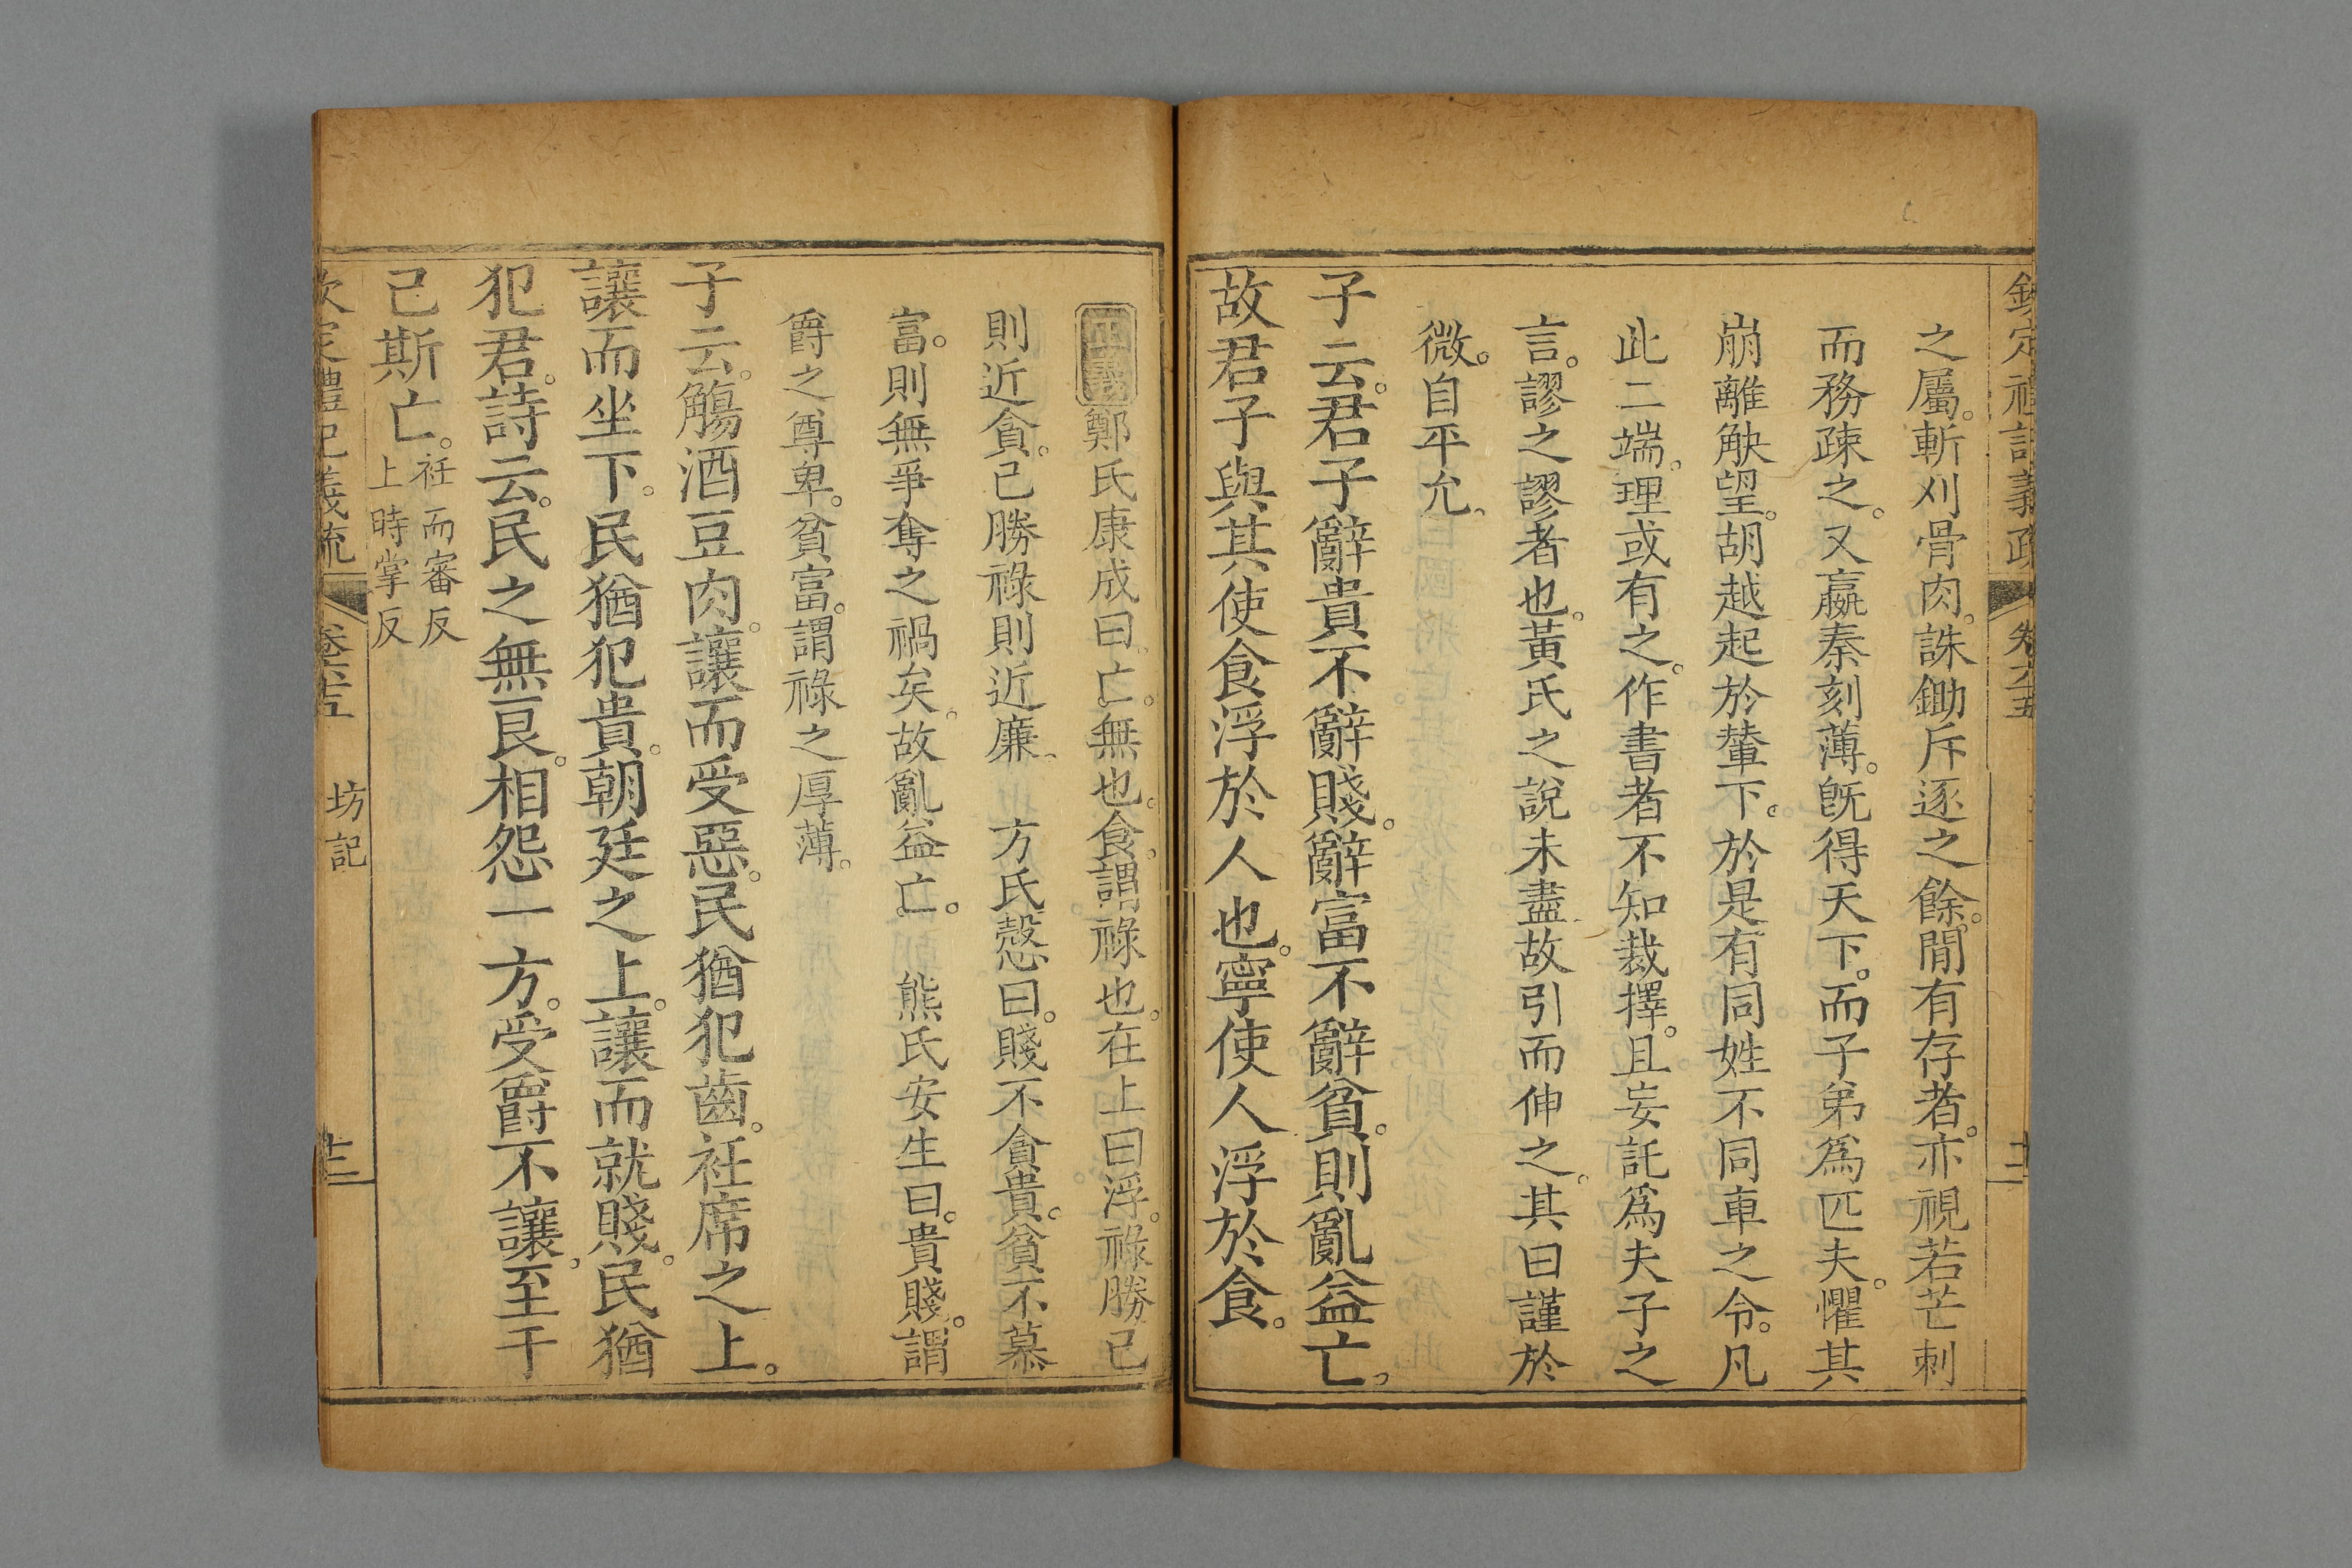 欽定禮記義疏 卷六十五 十二
之屬。斬刈骨肉。誅鋤斥逐之餘。閒有存者。亦視若芒刺
而務疎之。又嬴秦刻薄。旣得天下。而子弟爲匹夫。懼其
崩離觖望。胡越起於輦下。於是有同姓不同車之令。凡
此二端。理或有之。作書者不知裁擇。且妄託爲夫子之
言。謬之謬者也。黃氏之說未盡。故引而伸之。其曰謹於
微。自平允。
子云。君子辭貴不辭賤。辭富不辭貧。則亂益亡。
故君子與其使食浮於人也。寧使人浮於食。
正義鄭氏康成曰。亡。無也。食。謂祿也。在上曰浮。祿勝己
則近貪。己勝祿則近廉。 方氏慤曰。賤不貪貴。貧不慕
富。則無爭奪之禍矣。故亂益亡。 熊氏安生曰。貴賤。謂
爵之尊卑。貧富。謂祿之厚薄。
子云。觴酒豆肉。讓而受惡。民猶犯齒。衽席之上。
讓而坐下。民猶犯貴。朝廷之上。讓而就賤。民猶
犯君。詩云。民之無良。相怨一方。受爵不讓。至于
己斯亡。衽而審反
上時掌反
欽定禮記義疏 卷六十五 坊記 十二